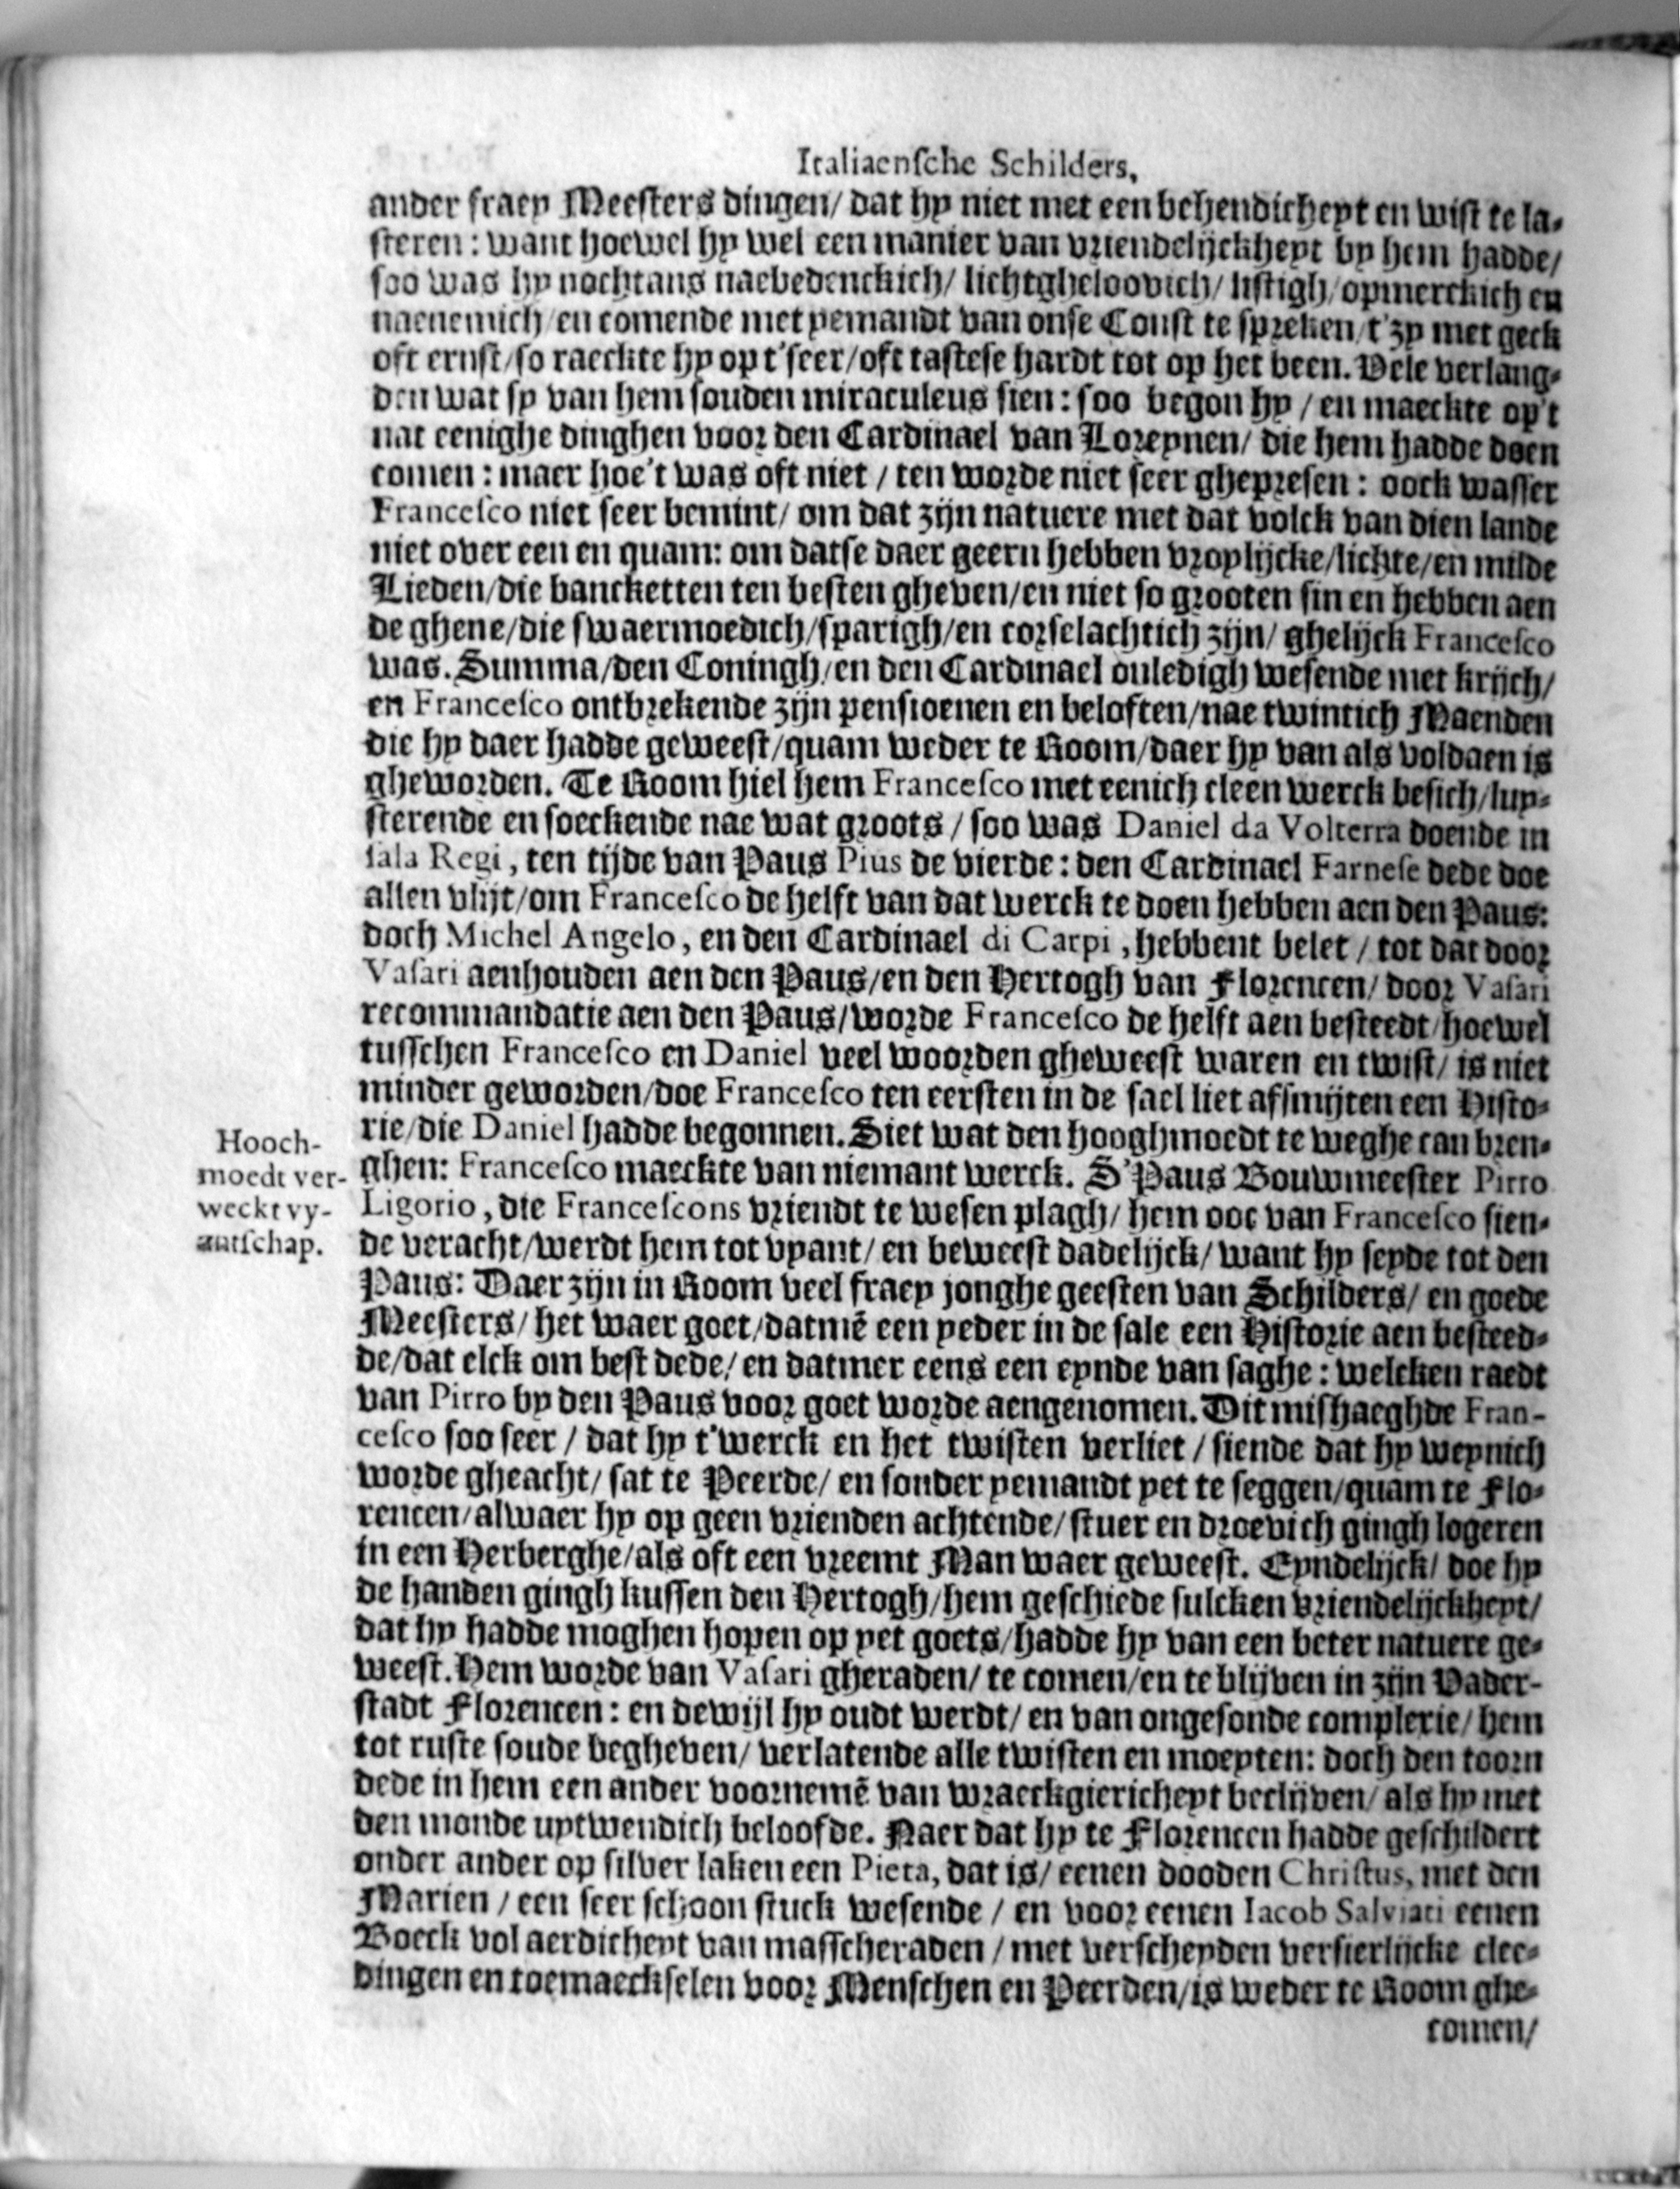 Italiaensche Schilders,
ander fraey Meesters dingen/ dat hy niet met een behendicheyt en wist te la-
steren: want hoewel hy wel een manier van vriendelijckheyt by hem hadde/
soo was hy nochtans naebedenckich/ lichtgheloovich/ listigh/ opmerckich en
naenemich/ en comende met yemandt van onse Const te spreken/ t'zy met geck
oft ernst/ so raeckte hy op t'seer/ oft tastese hardt tot op het been. Vele verlang-
den wat sy van hem souden miraculeus sien: soo begon hy/ en maeckte op't
nat eenighe dinghen voor den Cardinael van Loreynen/ die hem hadde doen
comen: maer hoe't was oft niet/ ten worde niet seer ghepresen: oock wasser
Francesco niet seer bemint/ om dat zijn natuere met dat volck van dien lande
niet over een en quam: om datse daer geern hebben vroylijcke/ lichte/ en milde
Lieden/ die bancketten ten besten gheven/ en niet so grooten sin en hebben aen
de ghene/ die swaermoedich/ sparigh/ en corselachtich zijn/ ghelijck Francesco
was. Summa/ den Coningh/ en den Cardinael onledigh wesende met krijch/
en Francesco ontbrekende zijn pensioenen en beloften/ nae twintich Maenden
die hy daer hadde geweest/ quam weder te Room/ daer hy van als voldaen is
gheworden. Te Room hiel hem Francesco met eenich cleen werck besich/ luy-
sterende en soeckende nae wat groots/ soo was Daniel da Volterra doende in
sala Regi, ten tijde van Paus Pius de vierde: den Cardinael Farnese dede doe
allen vlijt/ om Francesco de helft van dat werck te doen hebben aen den Paus:
doch Michel Angelo, en den Cardinael di Carpi, hebbent belet/ tot dat door
Vasari aenhouden aen den Paus/ en den Hertogh van Florencen/ door Vasari
recommandatie aen den Paus/ worde Francesco de helft aen besteedt/ hoewel
tusschen Francesco en Daniel veel woorden gheweest waren en twist/ is niet
minder geworden/ doe Francesco ten eersten in de sael liet afsmijten een Histo-
rie/ die Daniel hadde begonnen. Siet wat den hooghmoedt te weghe can bren-
ghen: Francesco maeckte van niemant werck. S'Paus Bouwmeester Pirro
Ligorio, die Francescons vriendt te wesen plagh/ hem ooc van Francesco sien-
de veracht/ werdt hem tot vyant/ en beweest dadelijck/ want hy seyde tot den
Paus: Daer zijn in Room veel fraey jonghe geesten van Schilders/ en goede
Meesters/ het waer goet/ datmē een yeder in de sale een Historie aen besteed-
de/ dat elck om best dede/ en datmer eens een eynde van saghe: welcken raedt
van Pirro by den Paus voor goet worde aengenomen. Dit mishaeghde Fran-
cesco soo seer/ dat hy t'werck en het twisten verliet/ siende dat hy weynich
worde gheacht/ sat te Peerde/ en sonder yemandt yet te seggen/ quam te Flo-
rencen/ alwaer hy op geen vrienden achtende/ stuer en droevich gingh logeren
in een Herberghe/ als oft een vreemt Man waer geweest. Eyndelijck/ doe hy
de handen gingh kussen den Hertogh/ hem geschiede sulcken vriendelijckheyt/
dat hy hadde moghen hopen op yet goets/ hadde hy van een beter natuere ge-
weest. Hem worde van Vasari gheraden/ te comen/ en te blijven in zijn Vader-
stadt Florencen: en dewijl hy oudt werdt/ en van ongesonde complexie/ hem
tot ruste soude begheven/ verlatende alle twisten en moeyten: doch den toorn
dede in hem een ander voornemē van wraeckgiericheyt beclijven/ als hy met
den monde uytwendich beloofde. Naer dat hy te Florencen hadde geschildert
onder ander op silver laken een Pieta, dat is/ eenen dooden Christus, met den
Marien/ een seer schoon stuck wesende/ en voor eenen Iacob Salviati eenen
Boeck vol aerdicheyt van masscheraden/ met verscheyden versierlijcke clee-
dingen en toemaeckselen voor Menschen en Peerden/ is weder te Room ghe-
comen/
Hooch-
moedt ver-
weckt vy-
antschap.